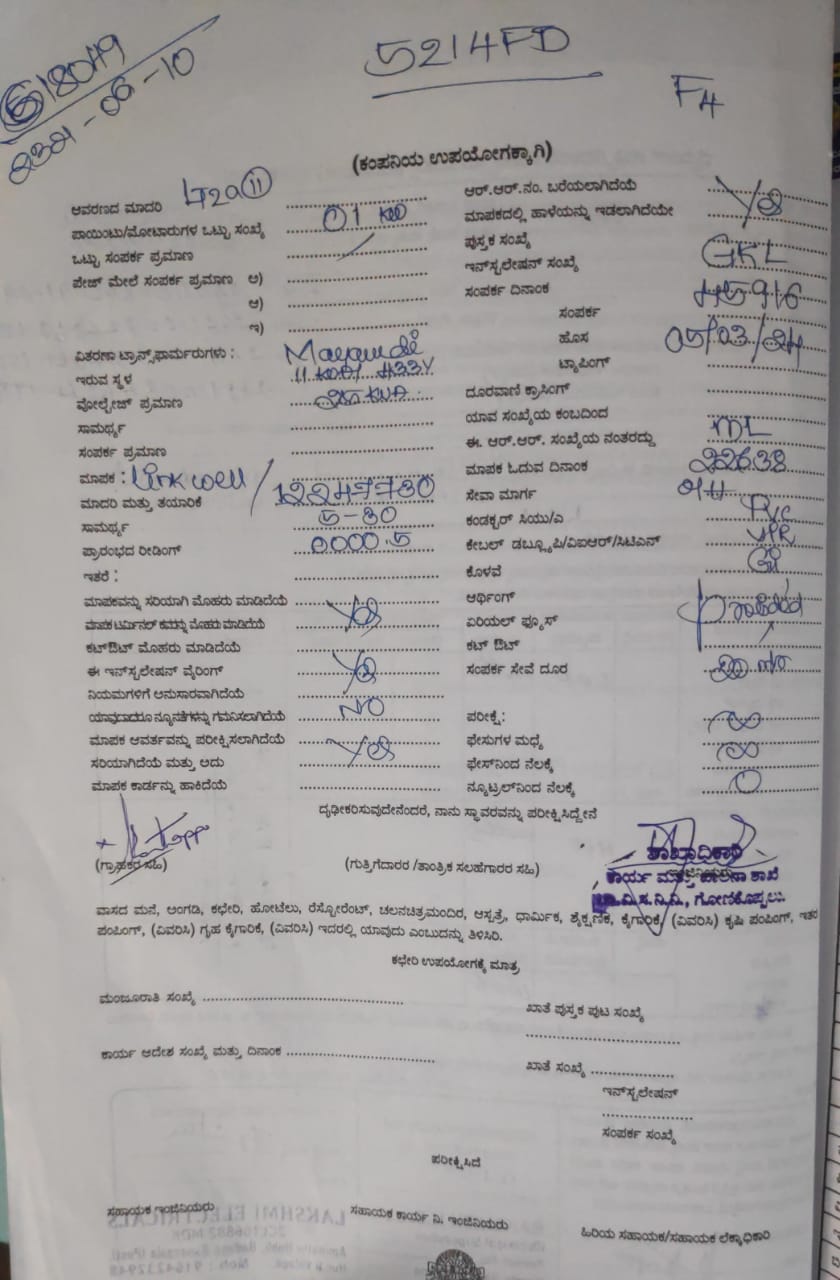 5214FD
618049
F4
(ಕಂಪನಿಯ ಉಪಯೋಗಕ್ಕಾಗಿ)
ಆವರಣದ ಮಾದರಿ
ಪಾಯಿಂಟು/ಮೋಟಾರುಗಳ ಒಟ್ಟು ಸಂಖ್ಯೆ 01
ಒಟ್ಟು ಸಂಪರ್ಕ ಪ್ರಮಾಣ
ಪೇಜ್ ಮೇಲೆ ಸಂಪರ್ಕ ಪ್ರಮಾಣ ಅ)
ಆ)
ಇ)
ವಿತರಣಾ ಟ್ರಾನ್ಸ್‌ಫಾರ್ಮರುಗಳು :
ಇರುವ ಸ್ಥಳ
ವೋಲ್ಟೇಜ್ ಪ್ರಮಾಣ
ಸಾಮರ್ಥ್ಯ
ಸಂಪರ್ಕ ಪ್ರಮಾಣ
ಮಾಪಕ : Linkwell / 12247730
ಮಾದರಿ ಮತ್ತು ತಯಾರಿಕೆ
ಸಾಮರ್ಥ್ಯ 5-30
ಪ್ರಾರಂಭದ ರೀಡಿಂಗ್ 0000.5
ಇತರೆ :
ಮಾಪಕವನ್ನು ಸರಿಯಾಗಿ ಮೊಹರು ಮಾಡಿದೆಯೆ
ಮಾಪಕ ಟರ್ಮಿನಲ್ ಕವಚವು ಮೊಹರು ಮಾಡಿದೆಯೆ
ಕಟ್‌ಔಟ್ ಮೊಹರು ಮಾಡಿದೆಯೆ
ಈ ಇನ್‌ಸ್ಟಲೇಷನ್ ವೈರಿಂಗ್
ನಿಯಮಗಳಿಗೆ ಅನುಸಾರವಾಗಿದೆಯೆ
ಯಾವುದಾದರೂ ನ್ಯೂನತೆಗಳನ್ನು ಗಮನಿಸಲಾಗಿದೆಯೆ NO
ಮಾಪಕ ಆವರ್ತವನ್ನು ಪರೀಕ್ಷಿಸಲಾಗಿದೆಯೆ
ಸರಿಯಾಗಿದೆಯೆ ಮತ್ತು ಅದು
ಮಾಪಕ ಕಾರ್ಡನ್ನು ಹಾಕಿದೆಯೆ
ಆರ್.ಆರ್.ನಂ. ಬರೆಯಲಾಗಿದೆಯೆ
ಮಾಪಕದಲ್ಲಿ ಹಾಳೆಯನ್ನು ಇಡಲಾಗಿದೆಯೇ
ಪುಸ್ತಕ ಸಂಖ್ಯೆ
ಇನ್‌ಸ್ಟಲೇಷನ್ ಸಂಖ್ಯೆ GKL
ಸಂಪರ್ಕ ದಿನಾಂಕ 45916
ಸಂಪರ್ಕ
ಹೊಸ 05/03/24
ಟ್ಯಾಪಿಂಗ್
ದೂರವಾಣಿ ಕ್ರಾಸಿಂಗ್
ಯಾವ ಸಂಖ್ಯೆಯ ಕಂಬದಿಂದ
ಈ. ಆರ್.ಆರ್. ಸಂಖ್ಯೆಯ ನಂತರದ್ದು ML
ಮಾಪಕ ಓದುವ ದಿನಾಂಕ 22638
ಸೇವಾ ಮಾರ್ಗ OH
ಕಂಡಕ್ಟರ್ ಸಿಯು/ಎ PVC
ಕೇಬಲ್ ಡಬ್ಲ್ಯೂಪಿ/ವಿಐಆರ್/ಸಿಟಿಎಸ್
ಕೊಳವೆ GI
ಅರ್ಥಿಂಗ್ Provided
ಏರಿಯಲ್ ಫ್ಯೂಸ್
ಕಟ್ ಔಟ್
ಸಂಪರ್ಕ ಸೇವೆ ದೂರ
ಪರೀಕ್ಷೆ:
ಫೇಸುಗಳ ಮಧ್ಯೆ
ಫೇಸ್‌ನಿಂದ ನೆಲಕ್ಕೆ
ನ್ಯೂಟ್ರಲ್‌ನಿಂದ ನೆಲಕ್ಕೆ 0
ದೃಢೀಕರಿಸುವುದೇನೆಂದರೆ, ನಾನು ಸ್ಥಾವರವನ್ನು ಪರೀಕ್ಷಿಸಿದ್ದೇನೆ
(ಗ್ರಾಹಕರ ಸಹಿ)
(ಗುತ್ತಿಗೆದಾರರ /ತಾಂತ್ರಿಕ ಸಲಹೆಗಾರರ ಸಹಿ)
ಶಾಖಾಧಿಕಾರಿ
ಕಾರ್ಯ ಮತ್ತು ಪಾಲನಾ ಶಾಖೆ
ಚಾ.ವಿ.ಸ.ನಿ.ನಿ., ಗೋಣಿಕೊಪ್ಪಲು.
ವಾಸದ ಮನೆ, ಅಂಗಡಿ, ಕಛೇರಿ, ಹೋಟೆಲು, ರೆಸ್ಟೋರೆಂಟ್, ಚಲನಚಿತ್ರಮಂದಿರ, ಆಸ್ಪತ್ರೆ, ಧಾರ್ಮಿಕ, ಶೈಕ್ಷಣಿಕ, ಕೈಗಾರಿಕೆ, (ವಿವರಿಸಿ) ಕೃಷಿ ಪಂಪಿಂಗ್, ಇತರ
ಪಂಪಿಂಗ್, (ವಿವರಿಸಿ) ಗೃಹ ಕೈಗಾರಿಕೆ, (ವಿವರಿಸಿ) ಇದರಲ್ಲಿ ಯಾವುದು ಎಂಬುದನ್ನು ತಿಳಿಸಿರಿ.
ಕಛೇರಿ ಉಪಯೋಗಕ್ಕೆ ಮಾತ್ರ
ಮಂಜೂರಾತಿ ಸಂಖ್ಯೆ
ಖಾತೆ ಪುಸ್ತಕ ಪುಟ ಸಂಖ್ಯೆ
ಕಾರ್ಯ ಆದೇಶ ಸಂಖ್ಯೆ ಮತ್ತು ದಿನಾಂಕ
ಖಾತೆ ಸಂಖ್ಯೆ
ಇನ್‌ಸ್ಟಲೇಷನ್
ಸಂಪರ್ಕ ಸಂಖ್ಯೆ
ಪರೀಕ್ಷಿಸಿದೆ
ಸಹಾಯಕ ಇಂಜಿನಿಯರು
ಸಹಾಯಕ ಕಾರ್ಯ ನಿ. ಇಂಜಿನಿಯರು
ಹಿರಿಯ ಸಹಾಯಕ/ಸಹಾಯಕ ಲೆಕ್ಕಾಧಿಕಾರಿ